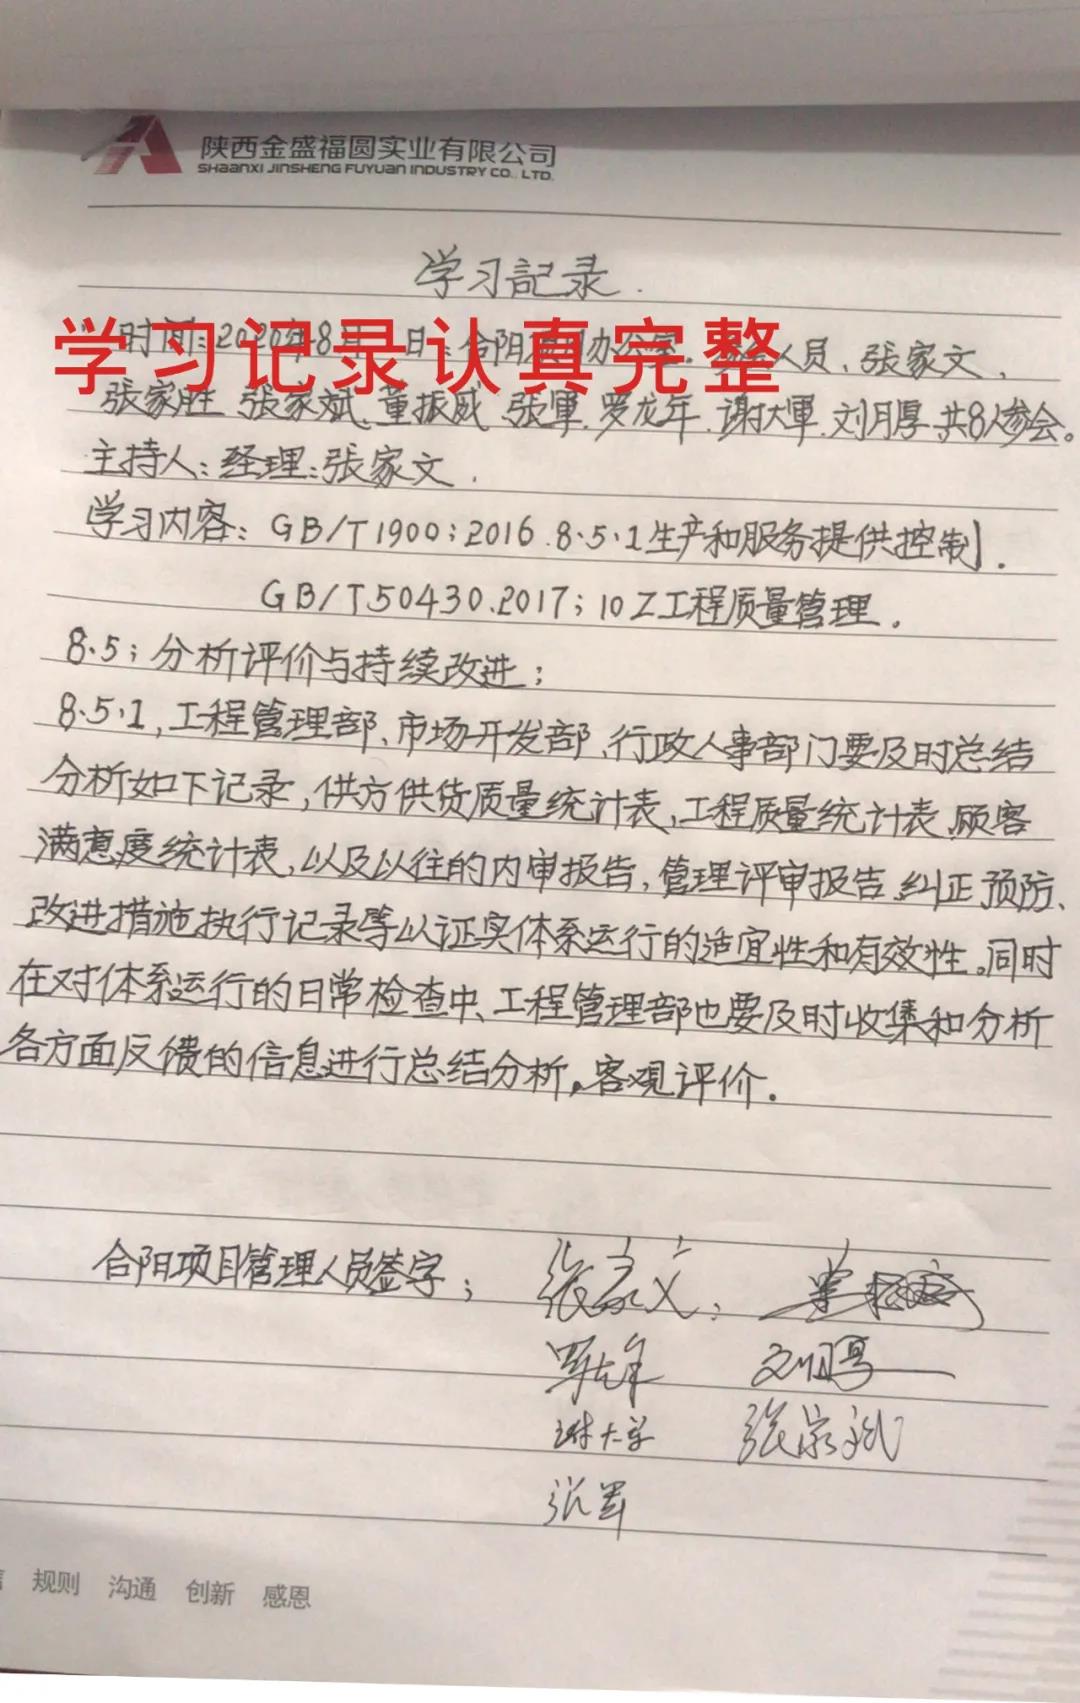 陕西金盛福圆实业有限公司
SHAANXI JINSHENG FUYUAN INDUSTRY CO., LTD.
学习記录.
学习记录认真完整
时间:2020年8月 日:合阳项目办公室. 人员、张家文、
张家胜、张家斌、董振威、张軍、罗龙年、谢大軍、刘月厚、共8人参会。
主持人:经理:張家文.
学习内容:GB/T1900:2016.8.5.1生产和服务提供控制.
GB/T50430.2017;10Z工程质量管理.
8.5;分析评价与持续改进;
8.5.1,工程管理部、市场开发部、行政人事部门要及时总结
分析如下记录,供方供货质量统计表,工程质量统计表、顾客
满意度统计表,以及以往的内审报告,管理评审报告、纠正、预防、
改进措施执行记录等以证实体系运行的适宜性和有效性。同时
在对体系运行的日常检查中、工程管理部也要及时收集和分析
各方面反馈的信息进行总结分析。客观评价.
合阳项目管理人员签字;
张家文:
张家斌
张軍
规则 沟通 创新 感恩